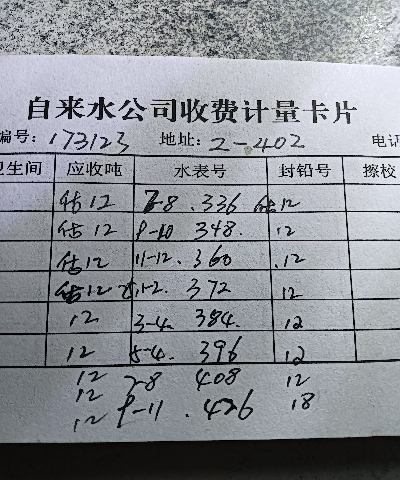 自来水公司收费计量卡片
编号: 173123 地址: 2-402 电话
卫生间 应收吨 水表号 封铅号 擦校
估12 7-8 .336 估12
估12 9-10 348. 12
估12 11-12. 360 .12
估12 1-2. 372 12
12 3-4. 384. 12
12 5-4. 396 12
12 7-8 408 12
12
12 9-11 .426 18